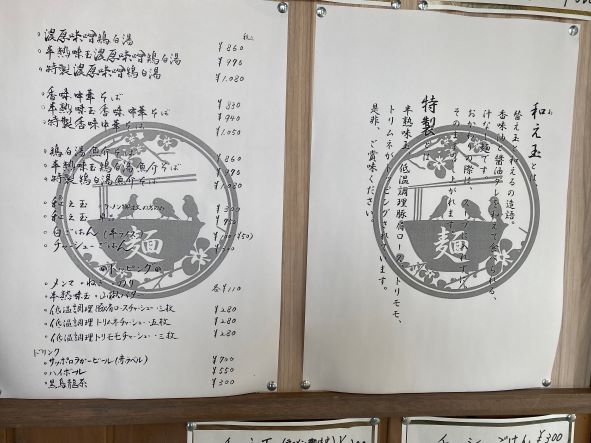 濃厚味噌鶏白湯 税込 ¥860
半熟味玉濃厚味噌鶏白湯 ¥990
特製濃厚味噌鶏白湯 ¥1,080
香味中華そば ¥830
半熟味玉香味中華そば ¥940
特製香味中華そば ¥1,050
鶏白湯魚介そば ¥860
半熟味玉鶏白湯魚介そば
特製鶏白湯魚介そば
和え玉 ¥300
和え玉
白ごはん(半ライス)
チーシューごはん
トッピング
メンマ・ねぎ・のり
半熟味玉 各¥110
低温調理豚肩ロースチャーシュー・三枚 ¥280
低温調理トリムネチャーシュー・五枚 ¥280
低温調理トリモモチャーシュー・三枚 ¥280
ドリンク
サッポロラガービール(赤ラベル) ¥700
ハイボール ¥550
黒烏龍茶 ¥300
麺
和え玉とは、
替え玉と和えるの造語。
香味油と醤油ダレを和えて食べられる、
汁なし麺です。
おかわりの際は、スープに入れずに
そのまま
特製とは、
半熟味玉、低温調理豚肩ロース、トリモモ、
トリムネがトッピングされています。
是非、ご賞味ください。
麺
¥300